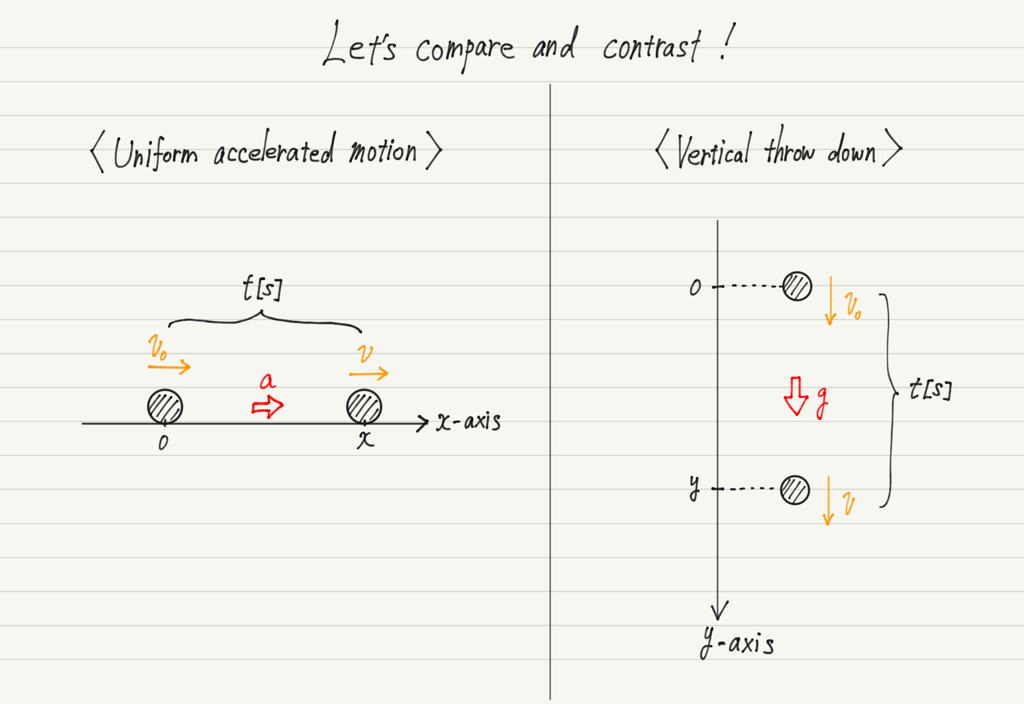 Let's compare and contrast!
<Uniform accelerated motion>
t[s]
v₀
v
a
x-axis
0
x
<Vertical throw down>
0
v₀
g
t[s]
y
v
y-axis